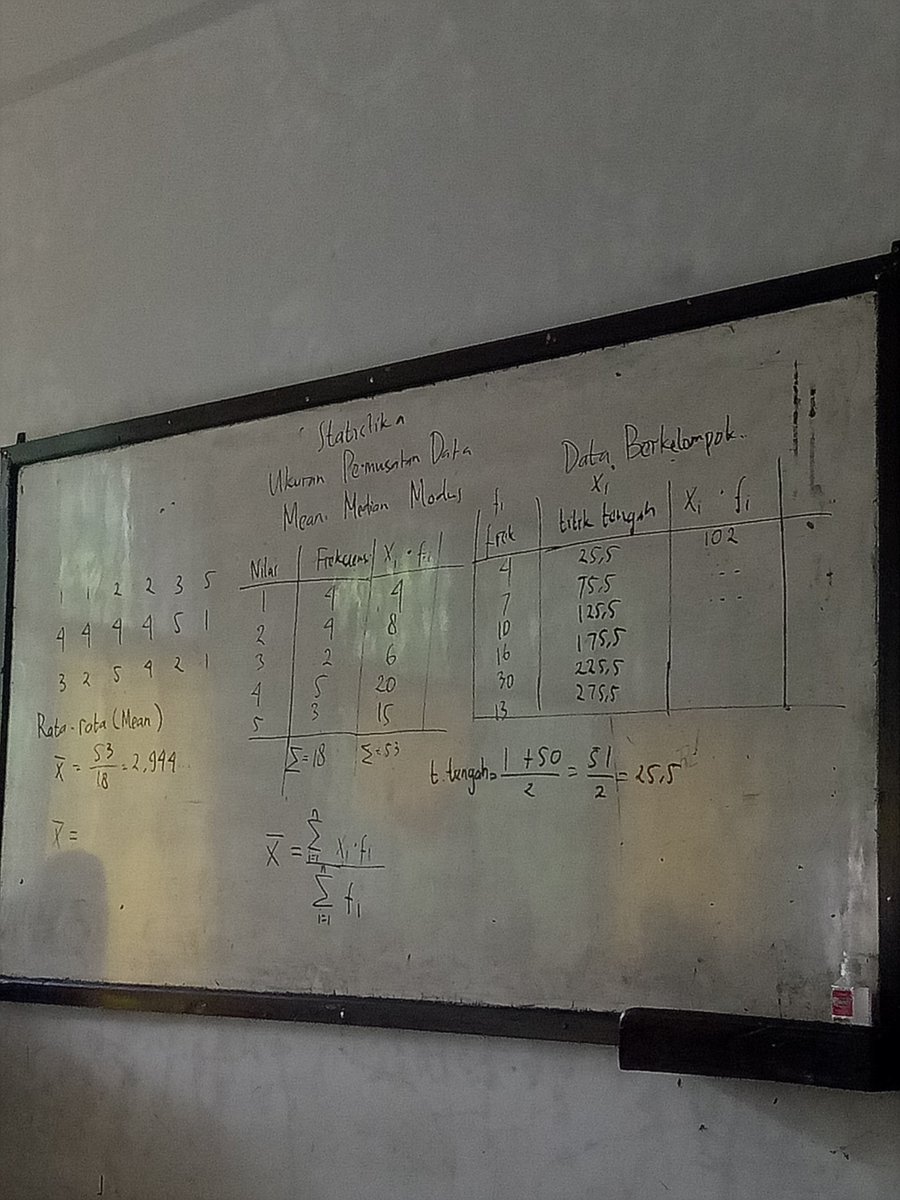 Statistika
Ukuran Pemusatan Data
Mean, Median Modus
1 1 2 2 3 5
4 4 4 4 5 1
3 2 5 4 2 1
Rata-rata (Mean)
x̄ = 53/18 = 2,944
x̄ =
Nilai Frekuensi Xi · fi
1 4 4
2 4 8
3 2 6
4 5 20
5 3 15
Σ=18 Σ=53
x̄ = Σ i=1 n xi·fi / Σ i=1 n fi
Data Berkelompok
fi xi
frek titik tengah Xi · fi
4 25,5 102
7 75,5 --
10 125,5 ---
16 175,5
30 225,5
13 275,5
t.tengah = 1+50/2 = 51/2 = 25,5